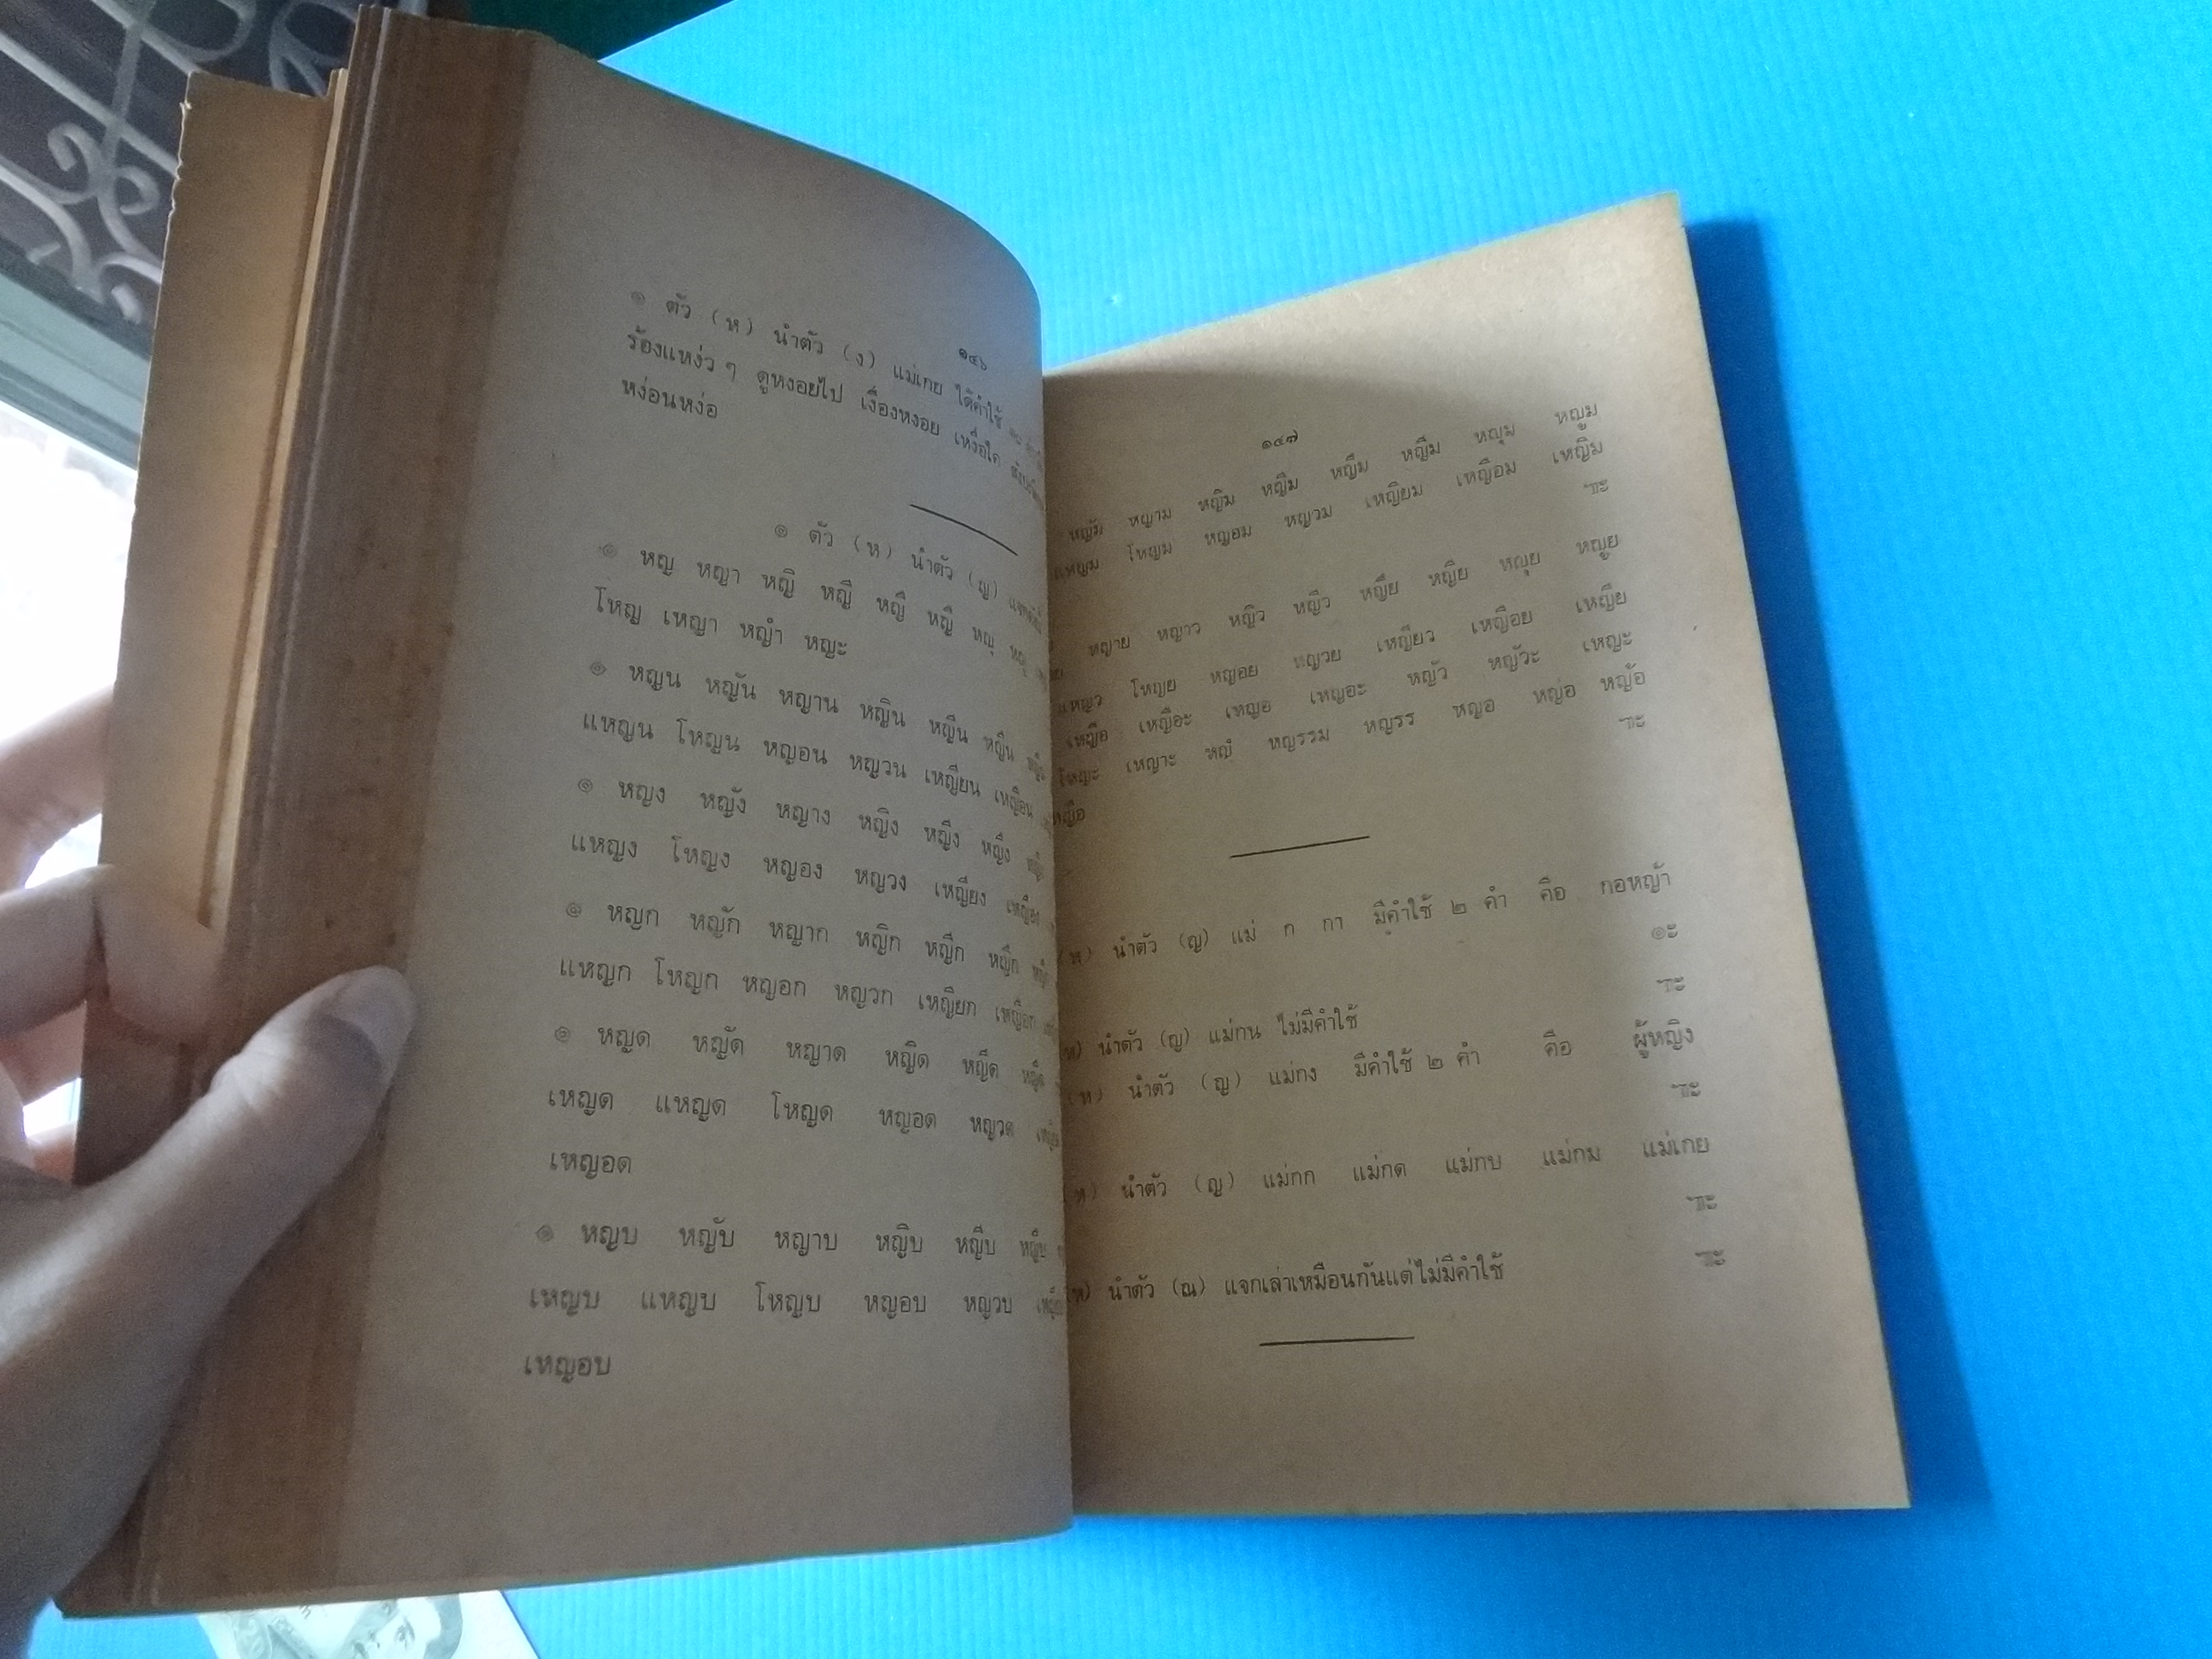 ๑๔๖
๏ ตัว (ห) นำตัว (ง) แม่เกย ได้คำใช้
ร้องแหง่ว ๆ ดูหงอยไป เงื่องหงอย เหงื่อใคล
หง่อนหง่อ
๏ ตัว (ห) นำตัว (ญ)
๏ หญ หญา หญิ หญี หญึ หญื หญุ
โหญ เหญา หญำ หญะ
๏ หญน หญัน หญาน หญิน หญีน หญึน
แหญน โหญน หญอน หญวน เหญียน เหญือน
๏ หญง หญัง หญาง หญิง หญีง หญึง
แหญง โหญง หญอง หญวง เหญียง เหญือง
๏ หญก หญัก หญาก หญิก หญีก หญึก
แหญก โหญก หญอก หญวก เหญียก เหญือก
๏ หญด หญัด หญาด หญิด หญีด หญึด
เหญด แหญด โหญด หญอด หญวด
เหญอด
๏ หญบ หญับ หญาบ หญิบ หญีบ หญึบ
เหญบ แหญบ โหญบ หญอบ หญวบ
เหญอบ
๑๔๗
หญัม หญาม หญิม หญีม หญึม หญืม หญุม หญูม
แหญม โหญม หญอม หญวม เหญียม เหญือม เหญิม
ฯะ
หญาย หญาว หญิว หญีว หญึย หญืย หญุย หญูย
แหญว โหญย หญอย หญวย เหญียว เหญือย เหญีย
เหญือ เหญือะ เหญอ เหญอะ หญัว หญัวะ เหญะ
โหญะ เหญาะ หญํ หญรรม หญรร หญอ หญ่อ หญ้อ
ฯะ
หญือ
(ห) นำตัว (ญ) แม่ ก กา มีคำใช้ ๒ คำ คือ กอหญ้า
๏ะ
ฯะ
ห) นำตัว (ญ) แม่กน ไม่มีคำใช้
(ห) นำตัว (ญ) แม่กง มีคำใช้ ๒ คำ คือ ผู้หญิง
ฯะ
ห) นำตัว (ญ) แม่กก แม่กด แม่กบ แม่กม แม่เกย
ฯะ
ห) นำตัว (ณ) แจกเล่าเหมือนกันแต่ไม่มีคำใช้
ฯะ